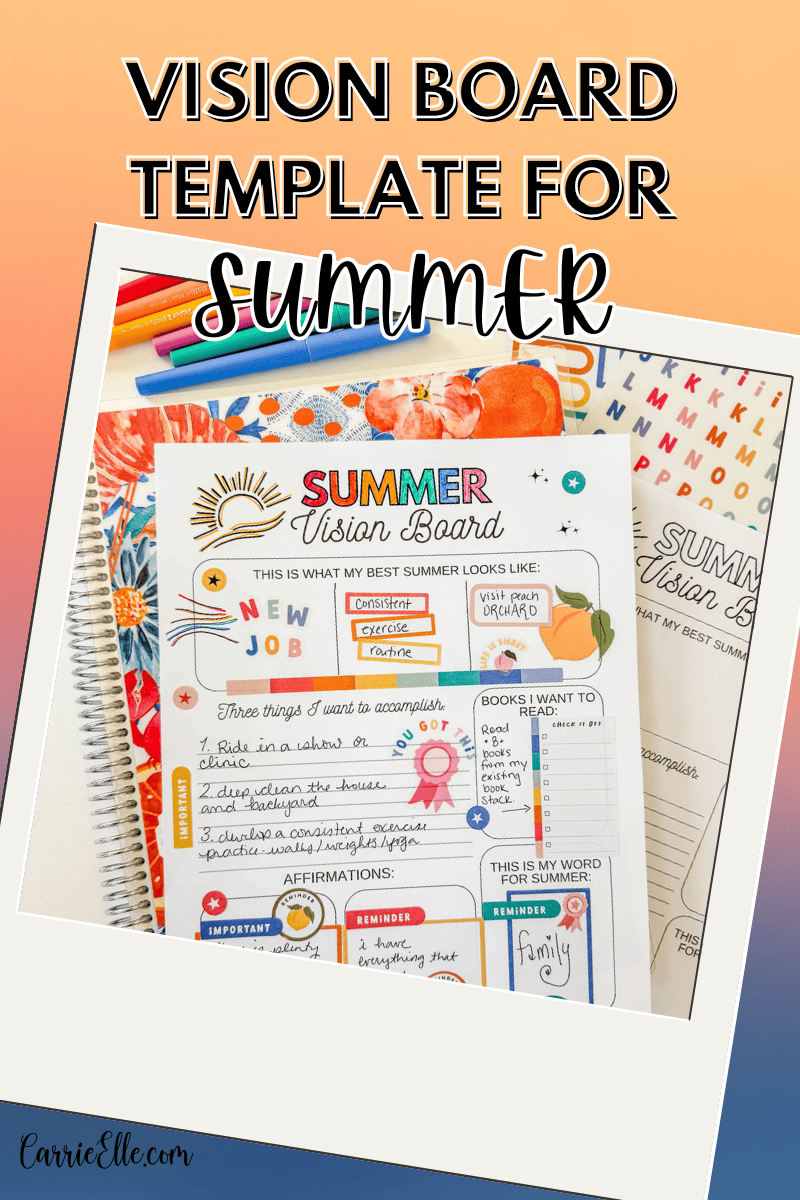 VISION BOARD
TEMPLATE FOR
SUMMER
SUMMER
Vision Board
THIS IS WHAT MY BEST SUMMER LOOKS LIKE:
NEW
JOB
consistent
exercise
routine
visit peach
ORCHARD
LIFE IS SWEET
Three things I want to accomplish:
1. Ride in a show or
clinic
2. deep clean the house
and backyard
3. develop a consistent exercise
practice-walks/weights/yoga
IMPORTANT
YOU GOT THIS
BOOKS I WANT TO
READ:
CHECK IT OFF
Read
8+
books
from my
existing
book
stack.
AFFIRMATIONS:
REMINDER
IMPORTANT
is plenty
REMINDER
i have
everything that
THIS IS MY WORD
FOR SUMMER:
REMINDER
family
K K K K L i i i
L M M M M L L
N N N N M M M
P P P P O O O
SUMM
Vision Bo
WHAT MY BEST SUMM
accomplish:
THIS
FOR
CarrieElle.com